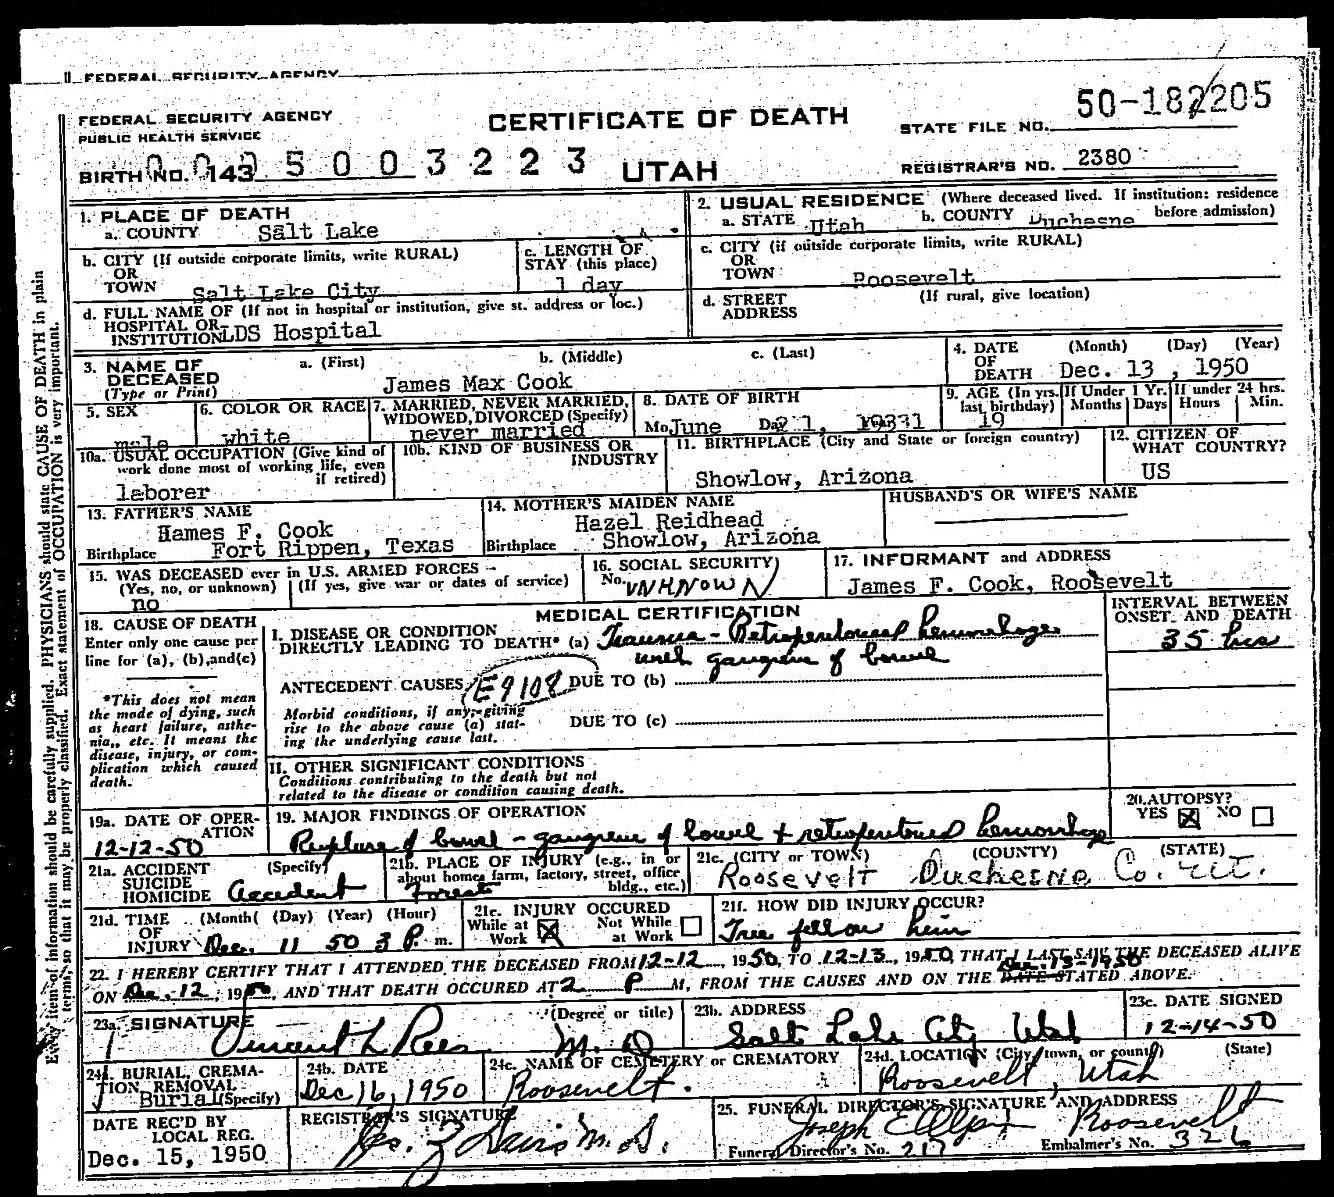 FEDERAL SECURITY AGENCY
FEDERAL SECURITY AGENCY
PUBLIC HEALTH SERVICE
CERTIFICATE OF DEATH
UTAH
STATE FILE NO. 50-182205
REGISTRAR'S NO. 2380
BIRTH NO. 143 0005003223
1. PLACE OF DEATH
a. COUNTY Salt Lake
b. CITY (If outside corporate limits, write RURAL)
OR
TOWN Salt Lake City
c. LENGTH OF
STAY (this place)
1 day
d. FULL NAME OF (If not in hospital or institution, give st. address or loc.)
HOSPITAL OR
INSTITUTION LDS Hospital
2. USUAL RESIDENCE (Where deceased lived. If institution: residence
before admission)
a. STATE Utah b. COUNTY Duchesne
c. CITY (if outside corporate limits, write RURAL)
OR
TOWN Roosevelt
d. STREET (If rural, give location)
ADDRESS
3. NAME OF a. (First) b. (Middle) c. (Last)
DECEASED
(Type or Print) James Max Cook
4. DATE (Month) (Day) (Year)
OF
DEATH Dec. 13, 1950
5. SEX
male
6. COLOR OR RACE
white
7. MARRIED, NEVER MARRIED,
WIDOWED, DIVORCED (Specify)
never married
8. DATE OF BIRTH
Mo June Da 21, 1931
9. AGE (In yrs. last birthday) 19
If Under 1 Yr. Months Days
If under 24 hrs. Hours Min.
10a. USUAL OCCUPATION (Give kind of
work done most of working life, even
if retired)
laborer
10b. KIND OF BUSINESS OR
INDUSTRY
11. BIRTHPLACE (City and State or foreign country)
Showlow, Arizona
12. CITIZEN OF
WHAT COUNTRY?
US
13. FATHER'S NAME
Hames F. Cook
Birthplace Fort Rippen, Texas
14. MOTHER'S MAIDEN NAME
Hazel Reidhead
Birthplace Showlow, Arizona
HUSBAND'S OR WIFE'S NAME
15. WAS DECEASED ever in U.S. ARMED FORCES
(Yes, no, or unknown) (If yes, give war or dates of service)
no
16. SOCIAL SECURITY
No. UNKNOWN
17. INFORMANT and ADDRESS
James F. Cook, Roosevelt
18. CAUSE OF DEATH
Enter only one cause per
line for (a), (b), and (c)
*This does not mean
the mode of dying, such
as heart failure, asthe-
nia,, etc. It means the
disease, injury, or com-
plication which caused
death.
MEDICAL CERTIFICATION
INTERVAL BETWEEN
ONSET AND DEATH
I. DISEASE OR CONDITION
DIRECTLY LEADING TO DEATH* (a) Trauma - Retroperitoneal hemorrhage
with gangrene of bowel
35 hrs
ANTECEDENT CAUSES E9108 DUE TO (b)
Morbid conditions, if any, giving
rise to the above cause (a) stat-
ing the underlying cause last.
DUE TO (c)
II. OTHER SIGNIFICANT CONDITIONS
Conditions contributing to the death but not
related to the disease or condition causing death.
19a. DATE OF OPER-
ATION
12-12-50
19. MAJOR FINDINGS OF OPERATION
Rupture of bowel - gangrene of bowel + retroperitoneal hemorrhage
20. AUTOPSY?
YES ☒ NO ☐
21a. ACCIDENT (Specify)
SUICIDE
HOMICIDE Accident
21b. PLACE OF INJURY (e.g., in or
about home, farm, factory, street, office
bldg., etc.)
Forest
21c. (CITY or TOWN) (COUNTY) (STATE)
Roosevelt Duchesne Co. Ut.
21d. TIME (Month) (Day) (Year) (Hour)
OF
INJURY Dec. 11 50 3 P. m.
21e. INJURY OCCURED
While at Work ☒ Not While at Work ☐
21f. HOW DID INJURY OCCUR?
Tree fell on him
22. I HEREBY CERTIFY THAT I ATTENDED THE DECEASED FROM 12-12, 1950, TO 12-13, 1950, THAT I LAST SAW THE DECEASED ALIVE
ON Dec. 12, 1950, AND THAT DEATH OCCURED AT 2 P M, FROM THE CAUSES AND ON THE DATE STATED ABOVE. Dec-13-1950
23a. SIGNATURE (Degree or title)
Vincent L Rees M.D
23b. ADDRESS
Salt Lake City Utah
23c. DATE SIGNED
12-14-50
24a. BURIAL, CREMA-
TION, REMOVAL
(Specify) Burial
24b. DATE
Dec 16, 1950
24c. NAME OF CEMETERY or CREMATORY
Roosevelt.
24d. LOCATION (City, town, or county) (State)
Roosevelt, Utah
DATE REC'D BY
LOCAL REG.
Dec. 15, 1950
REGISTRAR'S SIGNATURE
25. FUNERAL DIRECTOR'S SIGNATURE AND ADDRESS
Joseph Roosevelt
Funeral Director's No. 217 Embalmer's No. 326
Every item of information should be carefully supplied. PHYSICIANS should state CAUSE OF DEATH in plain
terms, so that it may be properly classified. Exact statement of OCCUPATION is very important.